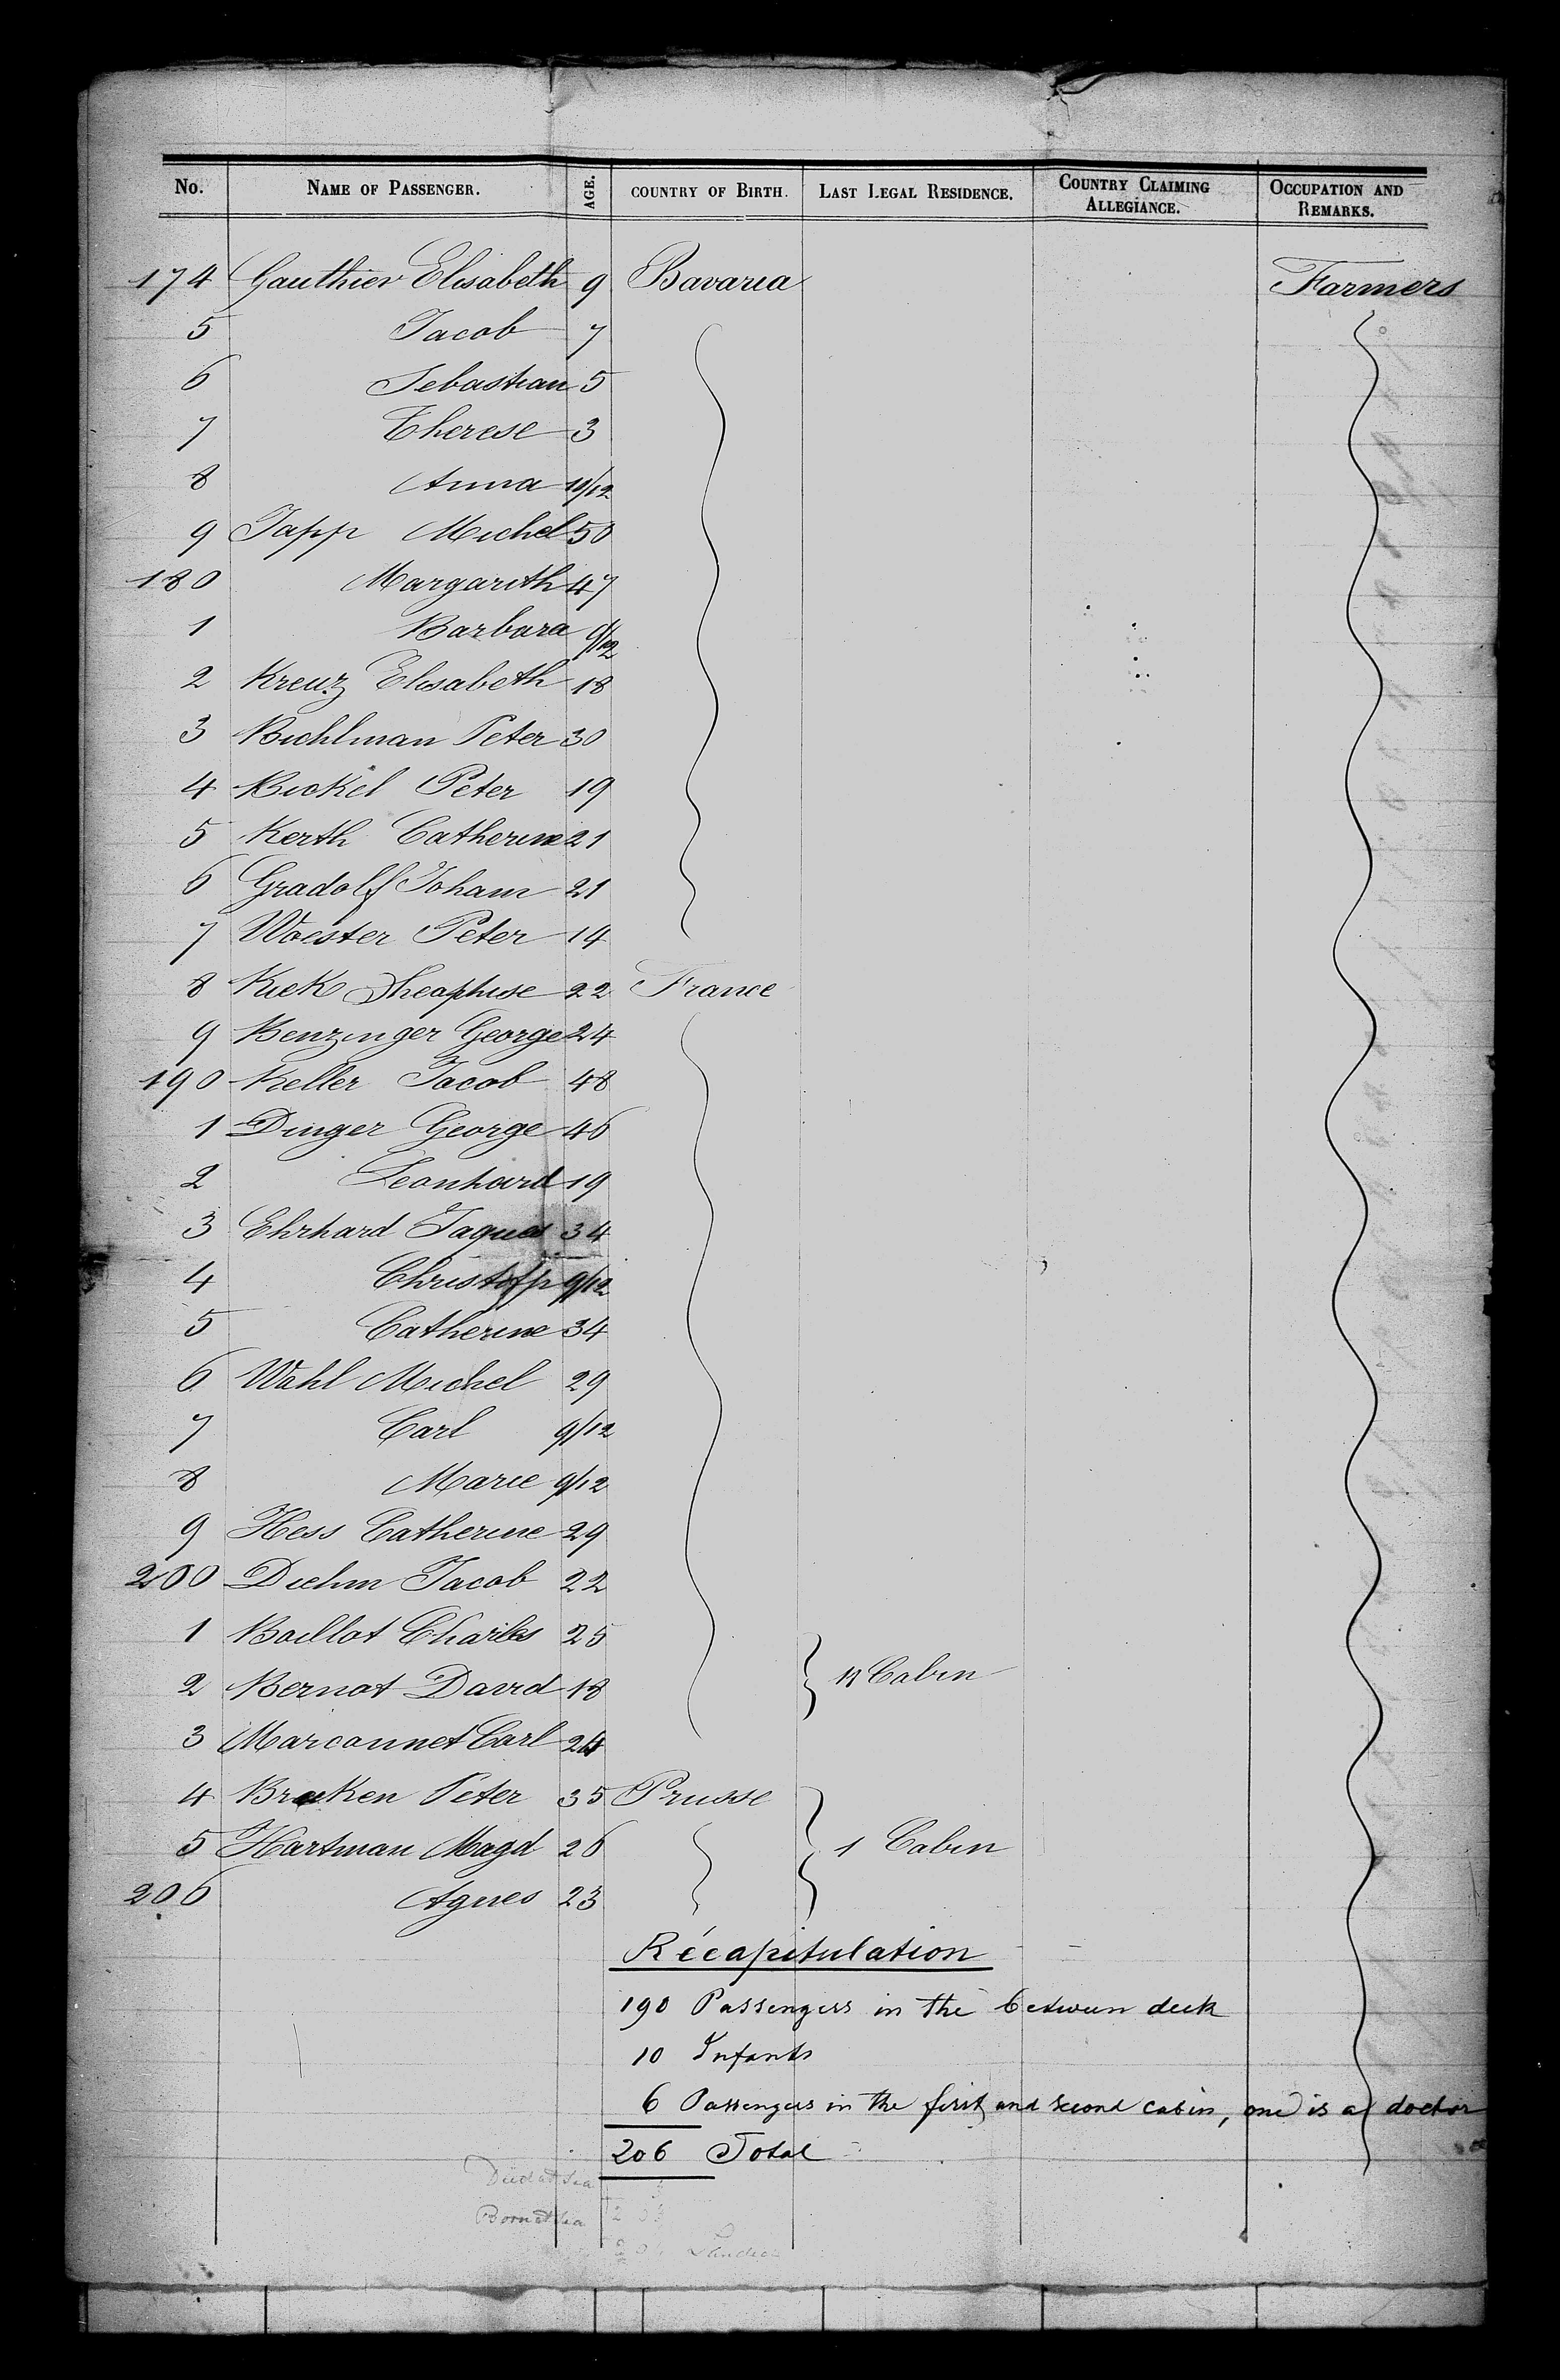 No. NAME OF PASSENGER. AGE. COUNTRY OF BIRTH. LAST LEGAL RESIDENCE. COUNTRY CLAIMING ALLEGIANCE. OCCUPATION AND REMARKS.
174 Gauthier Elisabeth 9 Bavaria Farmers
5 Jacob 7
6 Sebastian 5
7 Therese 3
8 Anna 10/12
9 Japp Michel 50
180 Margarith 47
1 Barbara 9/12
2 Kreuz Elisabeth 18
3 Bichlman Peter 30
4 Bickel Peter 19
5 Kerth Catherine 21
6 Gradolf Johann 21
7 Woester Peter 14
8 Kiek 22 France
9 Benzinger George 24
190 Keller Jacob 48
1 Dinger George 46
2 Leonhard 19
3 Ehrhard Jaques 34
4 Christofp 9/12
5 Catherine 34
6 Wahl Michel 29
7 Carl 9/12
8 Marie 9/12
9 Hess Catherine 29
200 Diehm Jacob 22
1 Baillot Charles 25
2 Bernot David 18 Cabin
3 Marconnet Carl 24
4 Braken Peter 35 Prusse
5 Hartman Magd 26 1 Cabin
206 Agnes 23
Récapitulation
190 Passengers in the between deck
10 Infants
6 Passengers in the first and second cabin, one is a doctor
206 Total
Died at sea
Born at sea